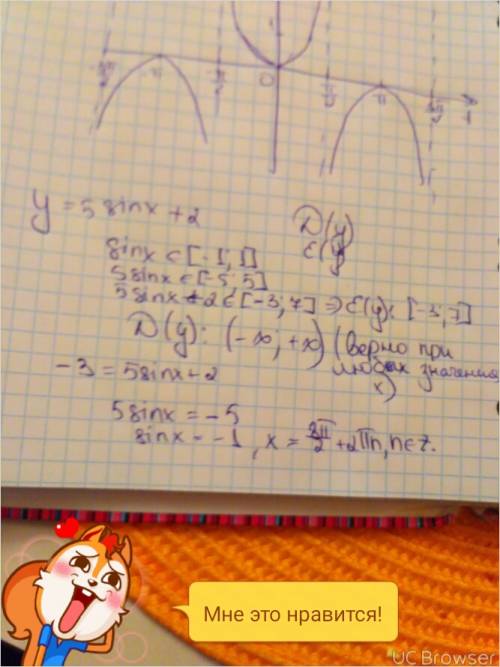 0
π
y = 5 sinx + 2
D(y)
E(y)
sinx ∈ [-1; 1]
5sinx ∈ [-5; 5]
5sinx + 2 ∈ [-3; 7] ⇒ E(y): [-3; 7]
D(y): (-∞; +∞) (верно при
любых значениях
x)
-3 = 5sinx + 2
5sinx = -5
sinx = -1, x = 3π/2 + 2πn, n ∈ Z.
Мне это нравится!
UC Browser